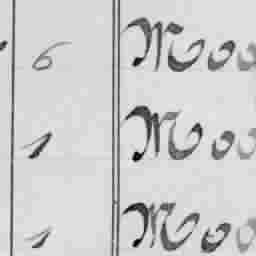 6 Moo
1 Moo
1 Moo